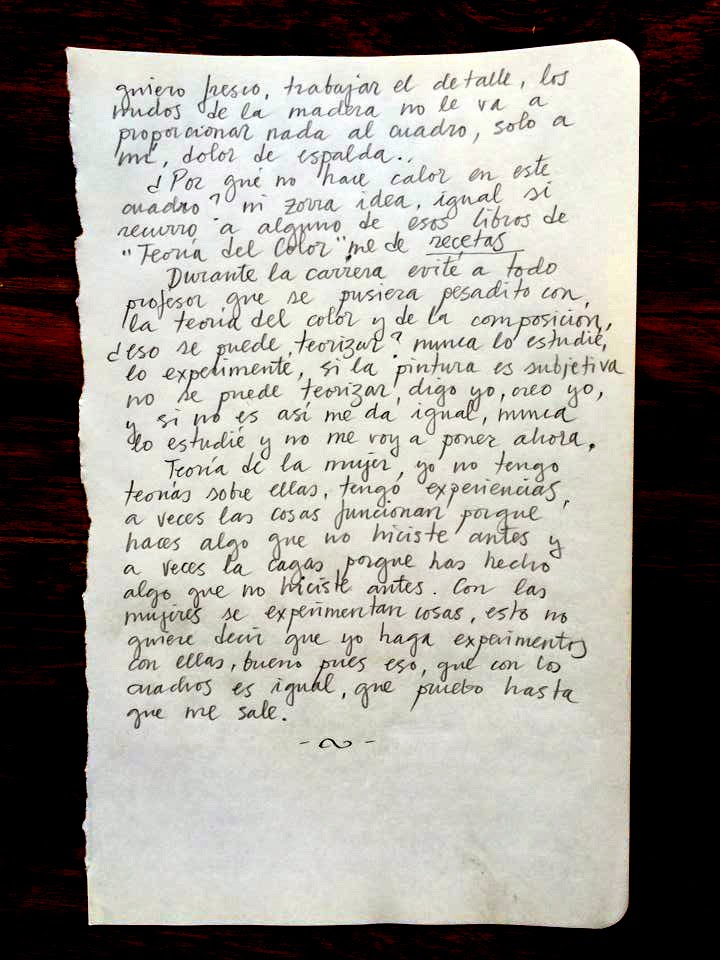 quiero fresco, trabajar el detalle, los
nudos de la madera no le va a
proporcionar nada al cuadro, solo a
mí, dolor de espalda..
¿Por qué no hace calor en este
cuadro? ni zorra idea, igual si
recurro a alguno de esos libros de
"Teoría del Color" me de recetas
Durante la carrera evité a todo
profesor que se pusiera pesadito con
la teoría del color y de la composición,
¿eso se puede teorizar? nunca lo estudié,
lo experimente, si la pintura es subjetiva
no se puede teorizar, digo yo, creo yo,
y si no es así me da igual, nunca
lo estudié y no me voy a poner ahora.
Teoría de la mujer, yo no tengo
teorías sobre ellas, tengo experiencias,
a veces las cosas funcionan porque
haces algo que no hiciste antes y
a veces la cagas porque has hecho
algo que no hiciste antes. Con las
mujeres se experimentan cosas, esto no
quiere decir que yo haga experimentos
con ellas, bueno pues eso, que con los
cuadros es igual, que pruebo hasta
que me sale.